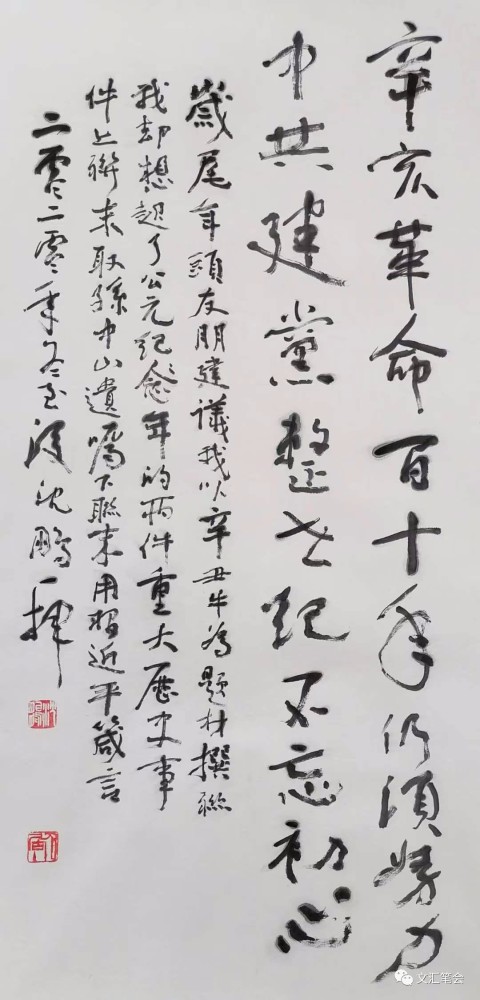 辛亥革命百十年仍須努力
中共建黨整世纪不忘初心
歲尾年頭友朋建議我以辛丑牛為題材撰聯
我却想起了公元纪念年的兩件重大歷史事
件上聯末取孫中山遺嘱下聯末用習近平箴言
二零二零年冬至後沈鵬一揮
文汇笔会